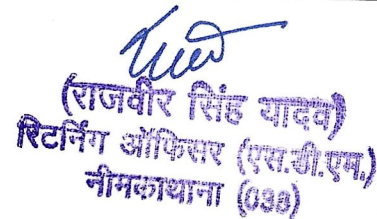 (राजवीर सिंह यादव)
रिटर्निंग ऑफिसर (एस.डी.एम.)
नीमकाथाना (038)